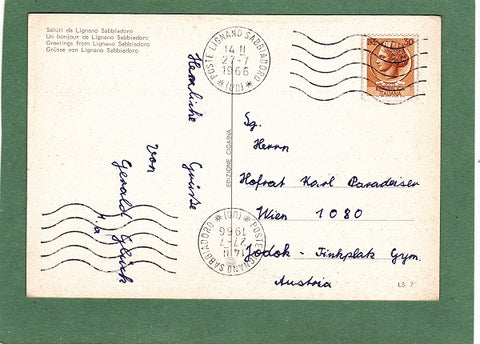 Saluti da Lignano Sabbiadoro
Un bonjour de Lignano Sabbiadoro
Greetings from Lignano Sabbiadoro
Grüsse von Lignano Sabbiadoro
Herzliche Grüße
von
Gerald Glück
EDIZIONE CIGAINA
POSTE LIGNANO SABBIADORO
(UD)
14 II
27-7
1966
ITALIANA
Sg.
Herrn
Hofrat Karl Paradeiser
Wien 1080
Jodok-Finkplatz Gym.
Austria
POSTE LIGNANO SABBIADORO
(UD)
27-7
1966
LS. 7